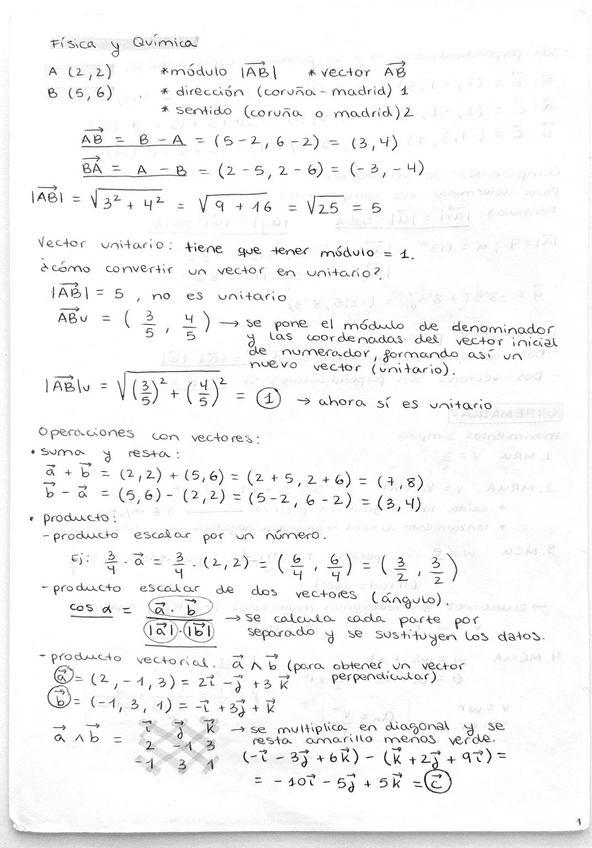 Física y Química
A (2,2) *módulo |AB| *vector AB
B (5,6) * dirección (coruña-madrid) 1
* sentido (coruña o madrid) 2
AB = B - A = (5-2, 6-2) = (3,4)
BA = A - B = (2-5, 2-6) = (-3, -4)
|AB| = √3² + 4² = √9 + 16 = √25 = 5
Vector unitario: tiene que tener módulo = 1.
¿cómo convertir un vector en unitario?
|AB| = 5, no es unitario
ABu = (3/5, 4/5) → se pone el módulo de denominador
y las coordenadas del vector inicial
de numerador, formando así un
nuevo vector (unitario).
|AB|u = √(3/5)² + (4/5)² = 1 → ahora sí es unitario
Operaciones con vectores:
• suma y resta:
a + b = (2,2) + (5,6) = (2+5, 2+6) = (7,8)
b - a = (5,6) - (2,2) = (5-2, 6-2) = (3,4)
• producto:
- producto escalar por un número.
Ej: 3/4 · a = 3/4 · (2,2) = (6/4, 6/4) = (3/2, 3/2)
- producto escalar de dos vectores (ángulo).
cos α = a · b / |a|·|b| → se calcula cada parte por
separado y se sustituyen los datos.
- producto vectorial. a ∧ b (para obtener un vector
perpendicular)
a = (2, -1, 3) = 2i - j + 3k
b = (-1, 3, 1) = -i + 3j + k
a ∧ b = i j k → se multiplica en diagonal y se
2 -1 3 resta amarillo menos verde.
-1 3 1 (-i - 3j + 6k) - (k + 2j + 9i) =
= -10i - 5j + 5k = c
1